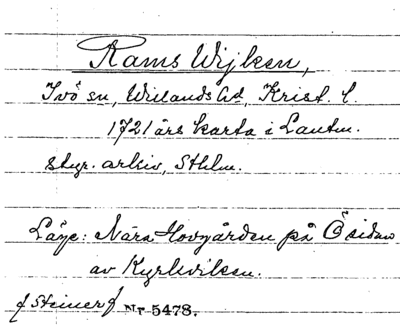 Rams Wijken,
Ivö sn, Willands hd, Krist. l.
1721 års karta i Lantm.
styr. arkiv, Sthlm.
Läge: Nära Hovgården på Ö sidan
av Kyrkviken.
Nr 5478.